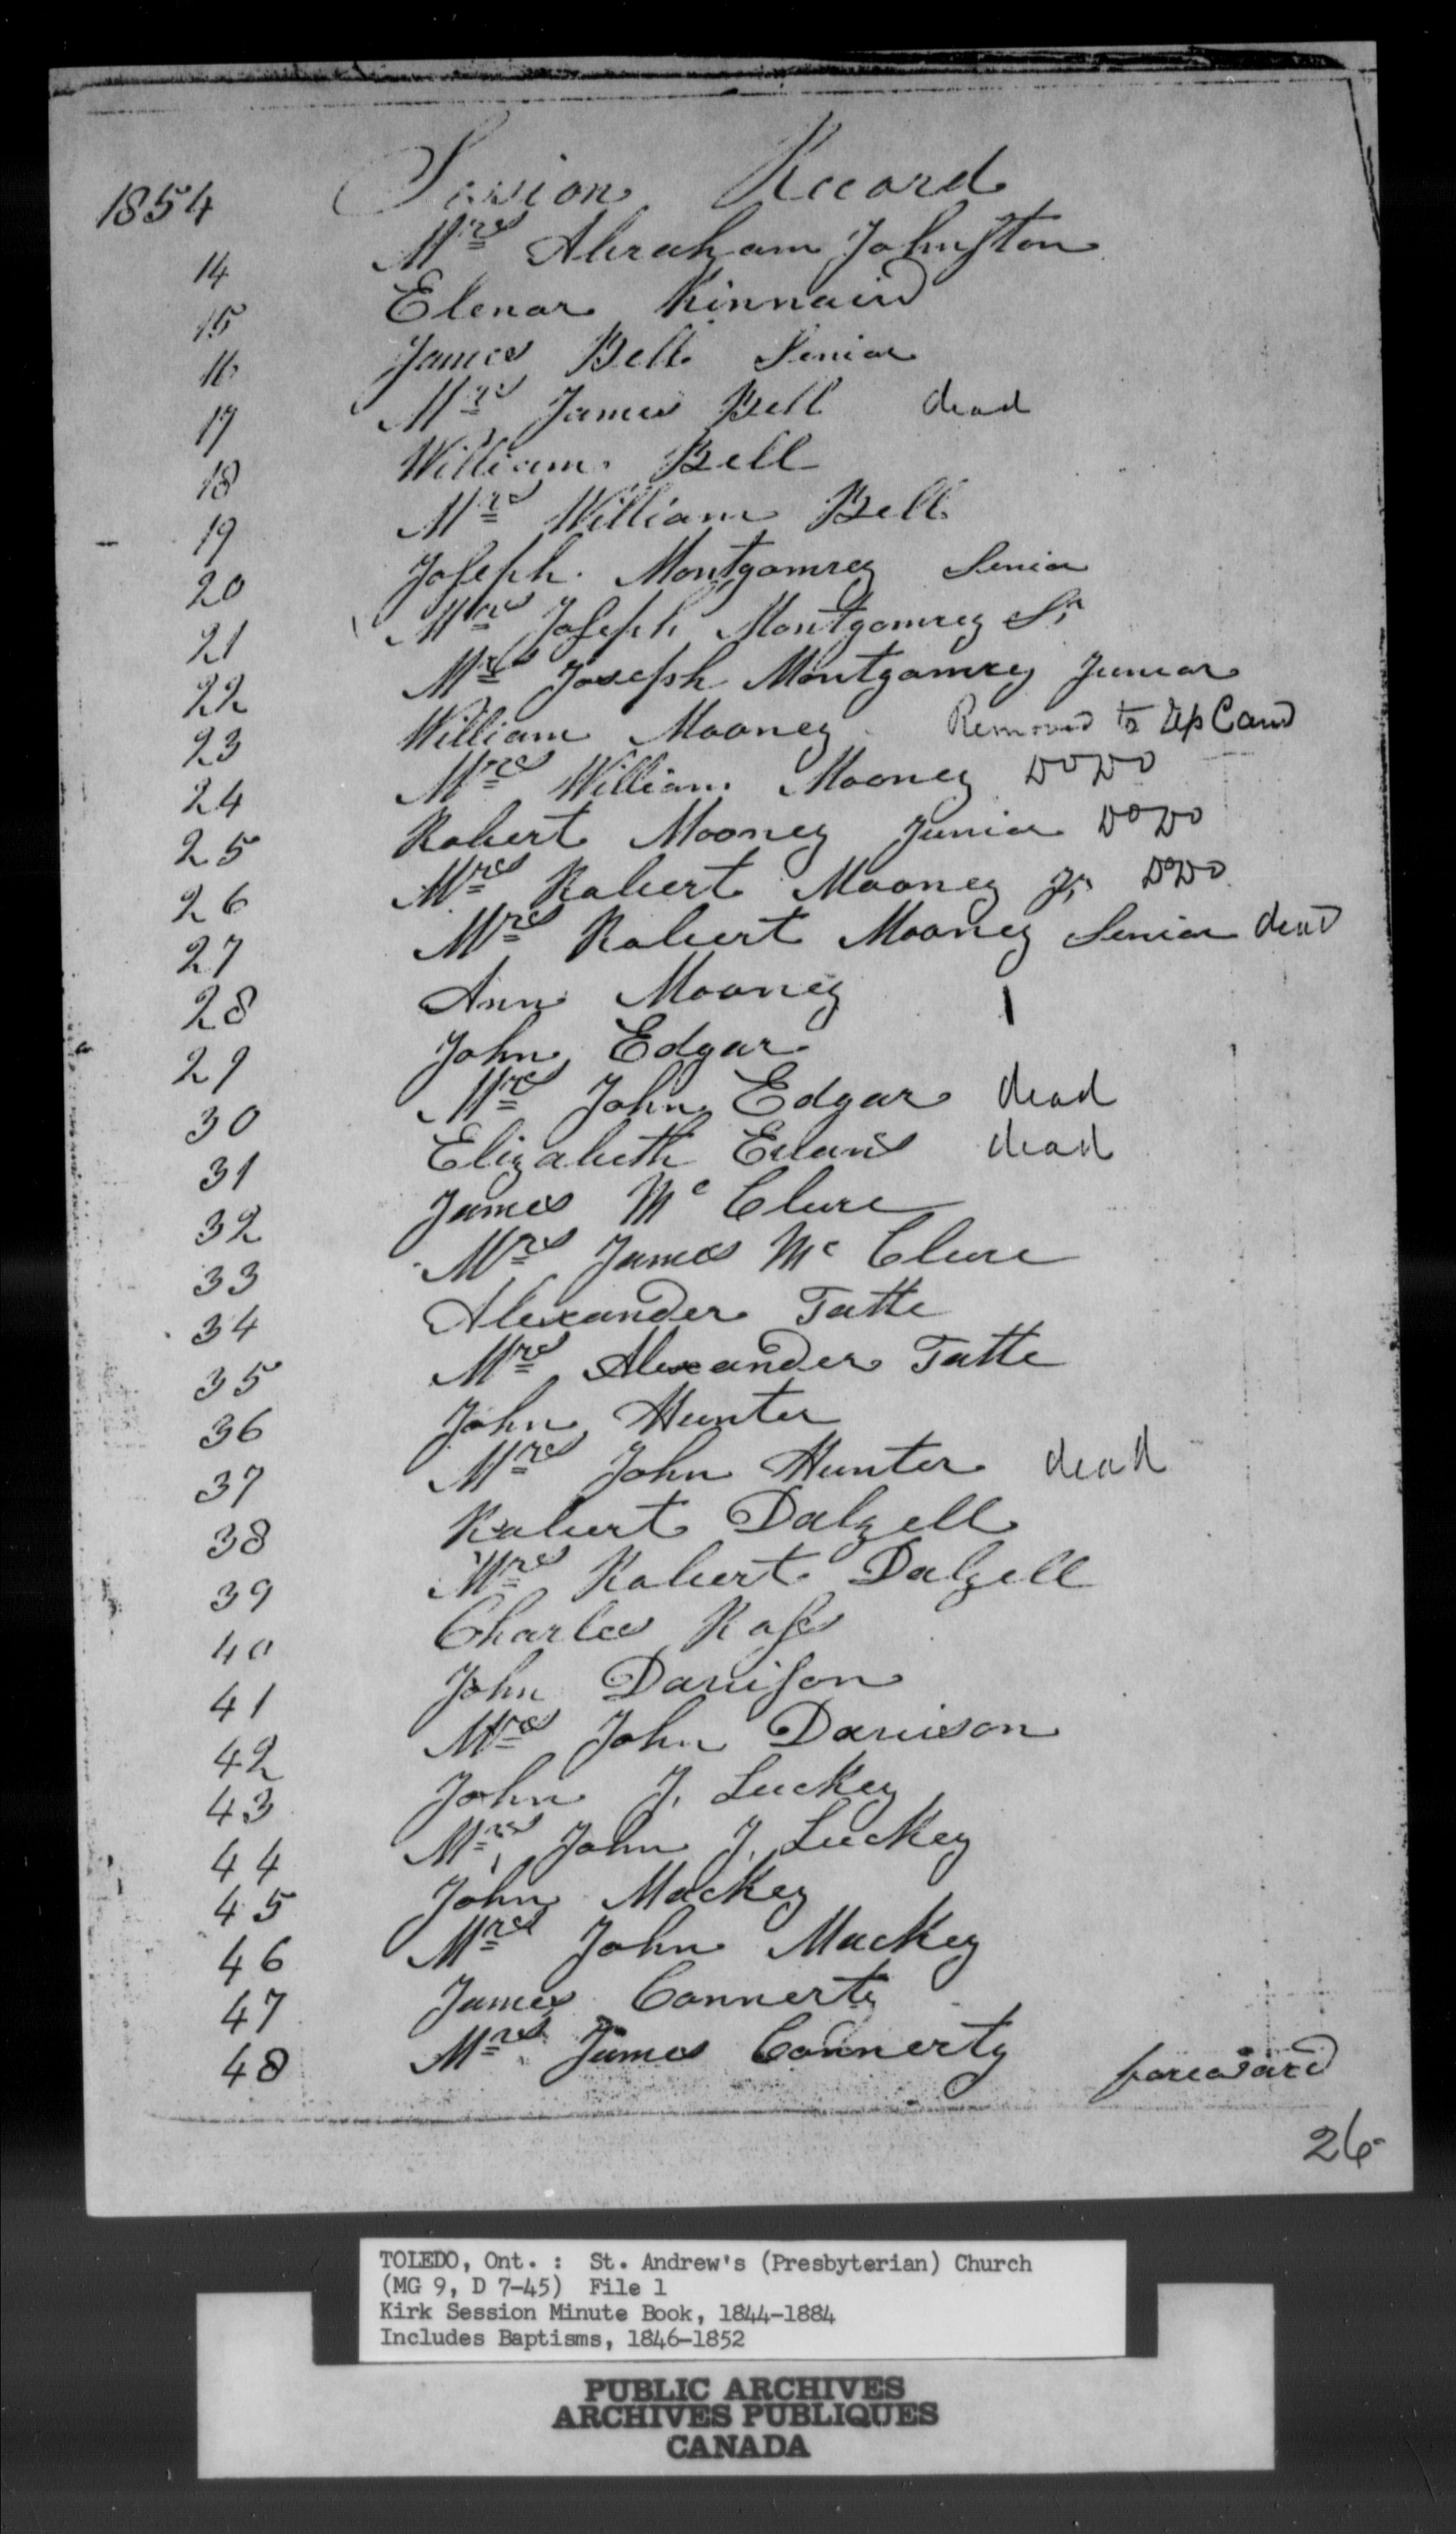 1854 Session Record
14 Mrs Abraham Johnston
15 Elenor Kinnaird
16 James Bell Senior
17 Mrs James Bell dead
18 William Bell
19 Mrs William Bell
20 Joseph Montgomrey Senior
21 Mrs Joseph Montgomrey Sr
22 Mrs Joseph Montgomrey Junior
23 William Mooney Removed to Up Cand
24 Mrs William Mooney Do Do
25 Robert Mooney Junior Do Do
26 Mrs Robert Mooney Jr Do Do
27 Mrs Robert Mooney Senior dead
28 Ann Mooney
29 John Edgar
30 Mrs John Edgar dead
31 Elizabeth dead
32 James Mc Clure
33 Mrs James Mc Clure
34 Alexander Tatte
35 Mrs Alexander Tatte
36 John Hunter
37 Mrs John Hunter dead
38 Robert Dalzell
39 Mrs Robert Dalzell
40 Charles Ross
41 John Davison
42 Mrs John Davison
43 John J. Luckey
44 Mrs John J. Luckey
45 John Mackey
46 Mrs John Mackey
47 James Connerty
48 Mrs James Connerty foreward
26
TOLEDO, Ont. : St. Andrew's (Presbyterian) Church
(MG 9, D 7-45) File 1
Kirk Session Minute Book, 1844-1884
Includes Baptisms, 1846-1852
PUBLIC ARCHIVES
ARCHIVES PUBLIQUES
CANADA